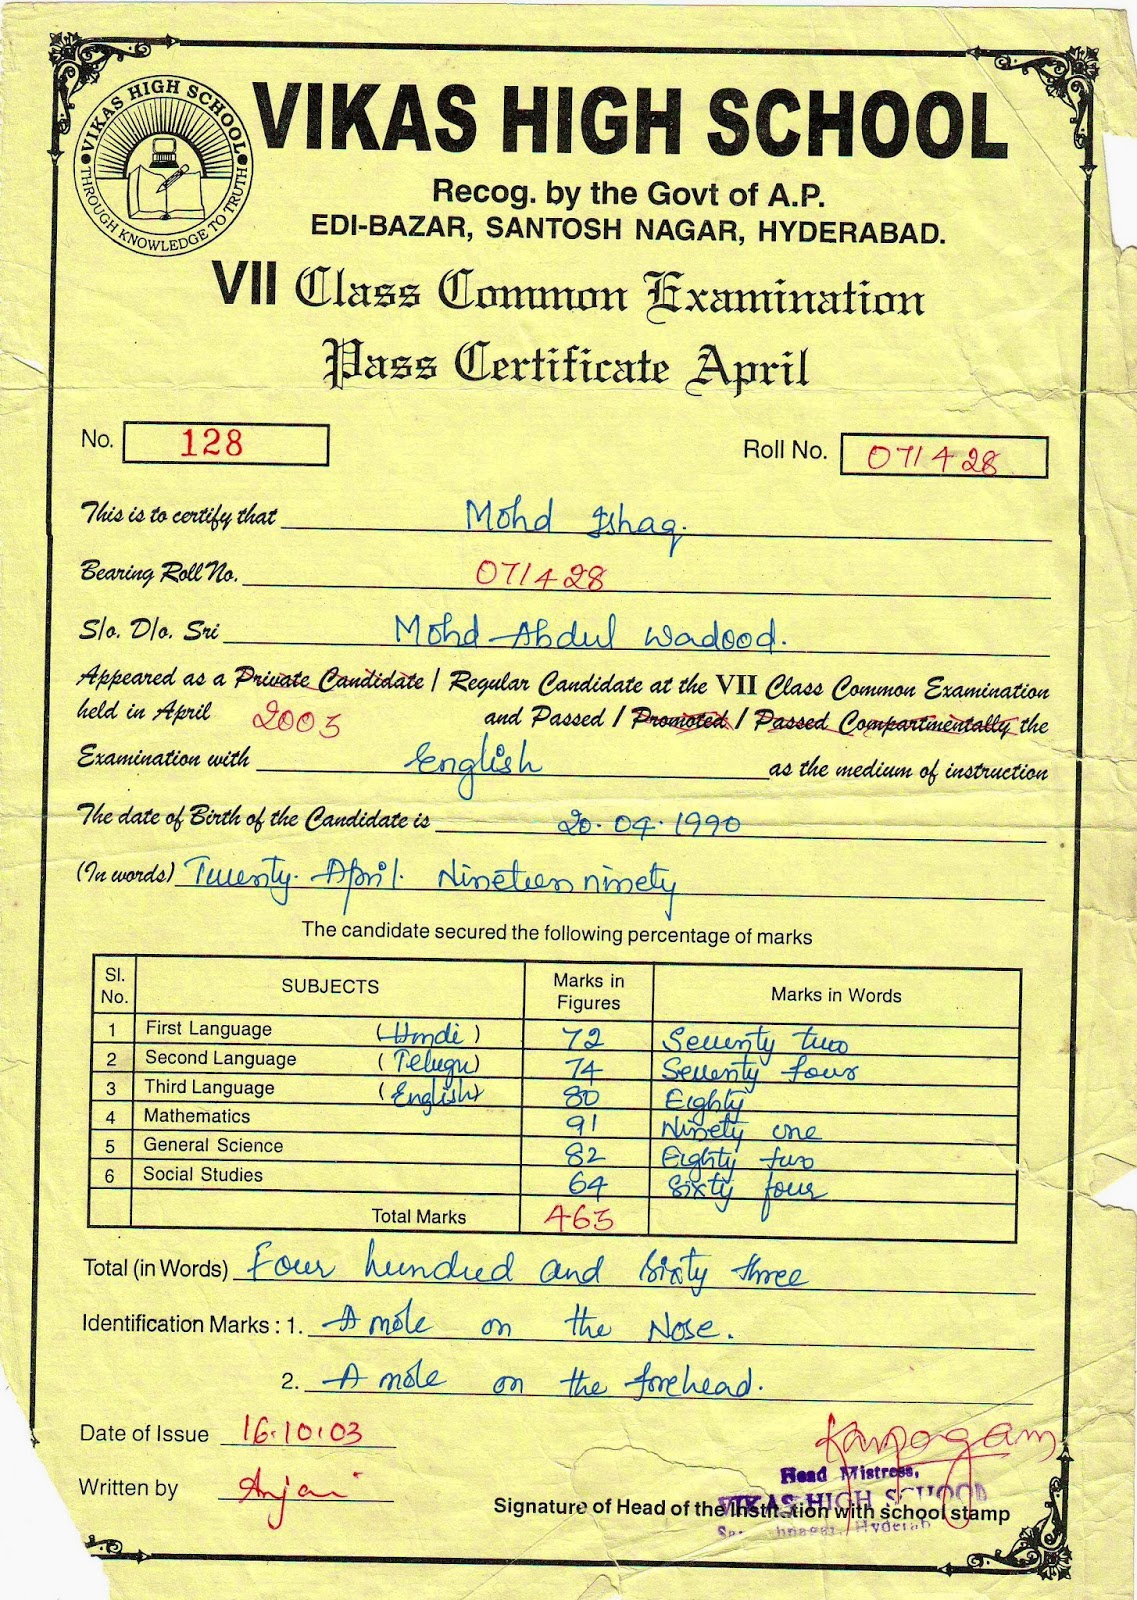 VIKAS HIGH SCHOOL
THROUGH KNOWLEDGE TO TRUTH
VIKAS HIGH SCHOOL
Recog. by the Govt of A.P.
EDI-BAZAR, SANTOSH NAGAR, HYDERABAD.
VII Class Common Examination
Pass Certificate April
No. 128 Roll No. 071428
This is to certify that Mohd Ishaq.
Bearing Roll No. 071428
S/o. D/o. Sri Mohd Abdul Wadood.
Appeared as a Private Candidate / Regular Candidate at the VII Class Common Examination
held in April 2003 and Passed / Promoted / Passed Compartmentally the
Examination with English as the medium of instruction
The date of Birth of the Candidate is 20.04.1990
(In words) Twenty April Nineteen ninety
The candidate secured the following percentage of marks
Sl. No. SUBJECTS Marks in Figures Marks in Words
1 First Language (Hindi) 72 Seventy two
2 Second Language (Telugu) 74 Seventy four
3 Third Language (English) 80 Eighty
4 Mathematics 91 Ninety one
5 General Science 82 Eighty two
6 Social Studies 64 Sixty four
Total Marks 463
Total (in Words) Four hundred and Sixty three
Identification Marks : 1. A mole on the Nose.
2. A mole on the forehead.
Date of Issue 16.10.03
Written by Anjani
Head Mistress,
VIKAS HIGH SCHOOL
Signature of Head of the Institution with school stamp